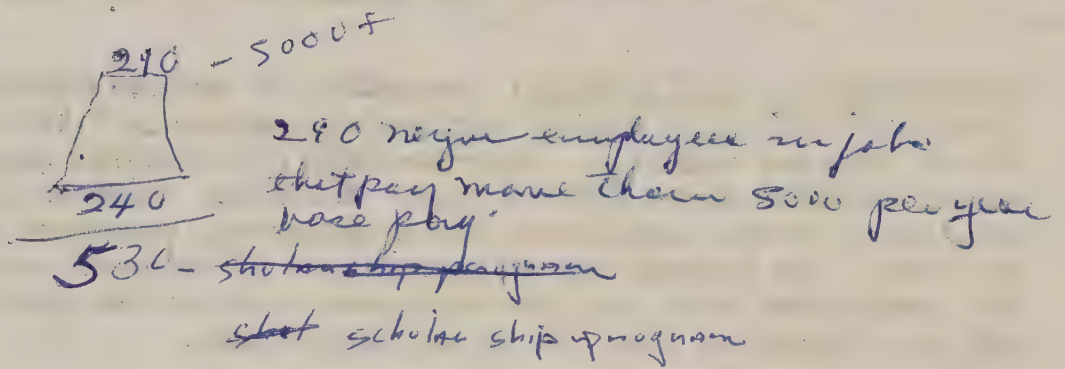 290 - 5000 +
290 negro employees in jobs
that pay more than 5000 per year
240
base pay.
530 - sholar ship program
shol scholar ship program